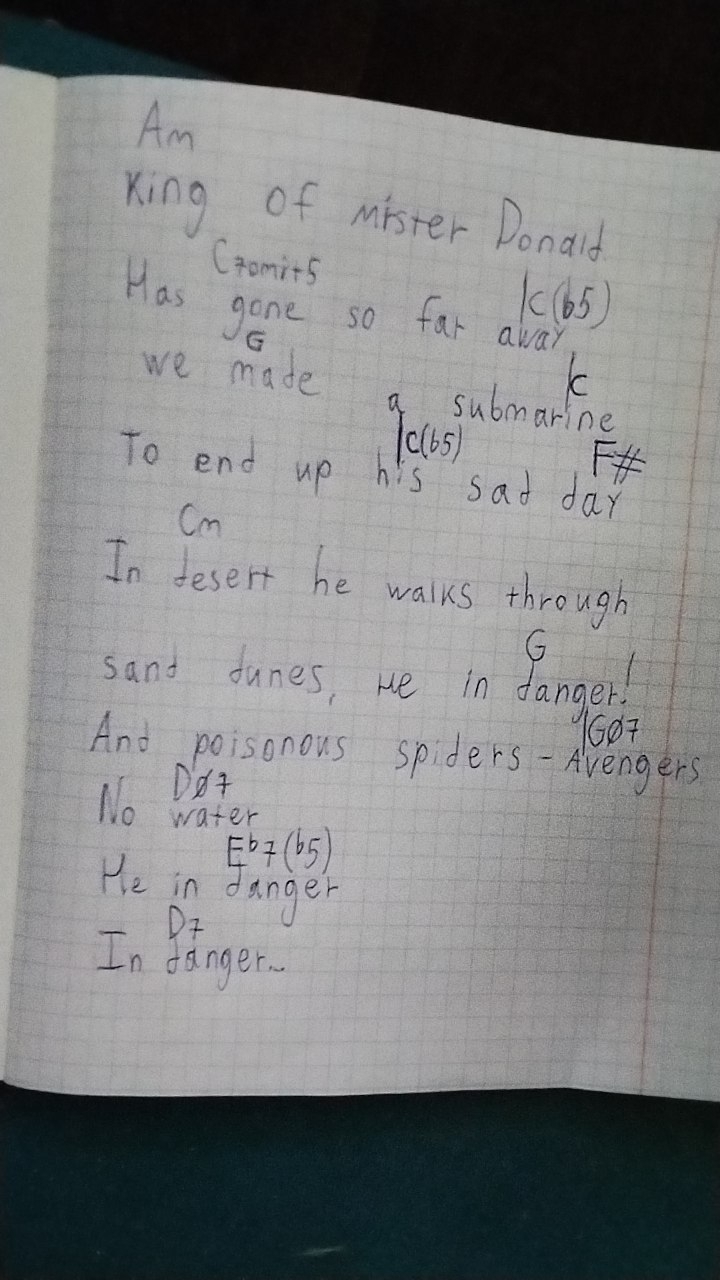 Am
King of mister Donald
C7omit5 |C(b5)
Has gone so far away
G |C
we made a submarine
|C(b5) F#
To end up his sad day
Cm
In desert he walks through
G
sand dunes, He in danger!
|GØ7
And poisonous spiders - Avengers
DØ7
No water
Eb7(b5)
He in danger
D7
In danger...